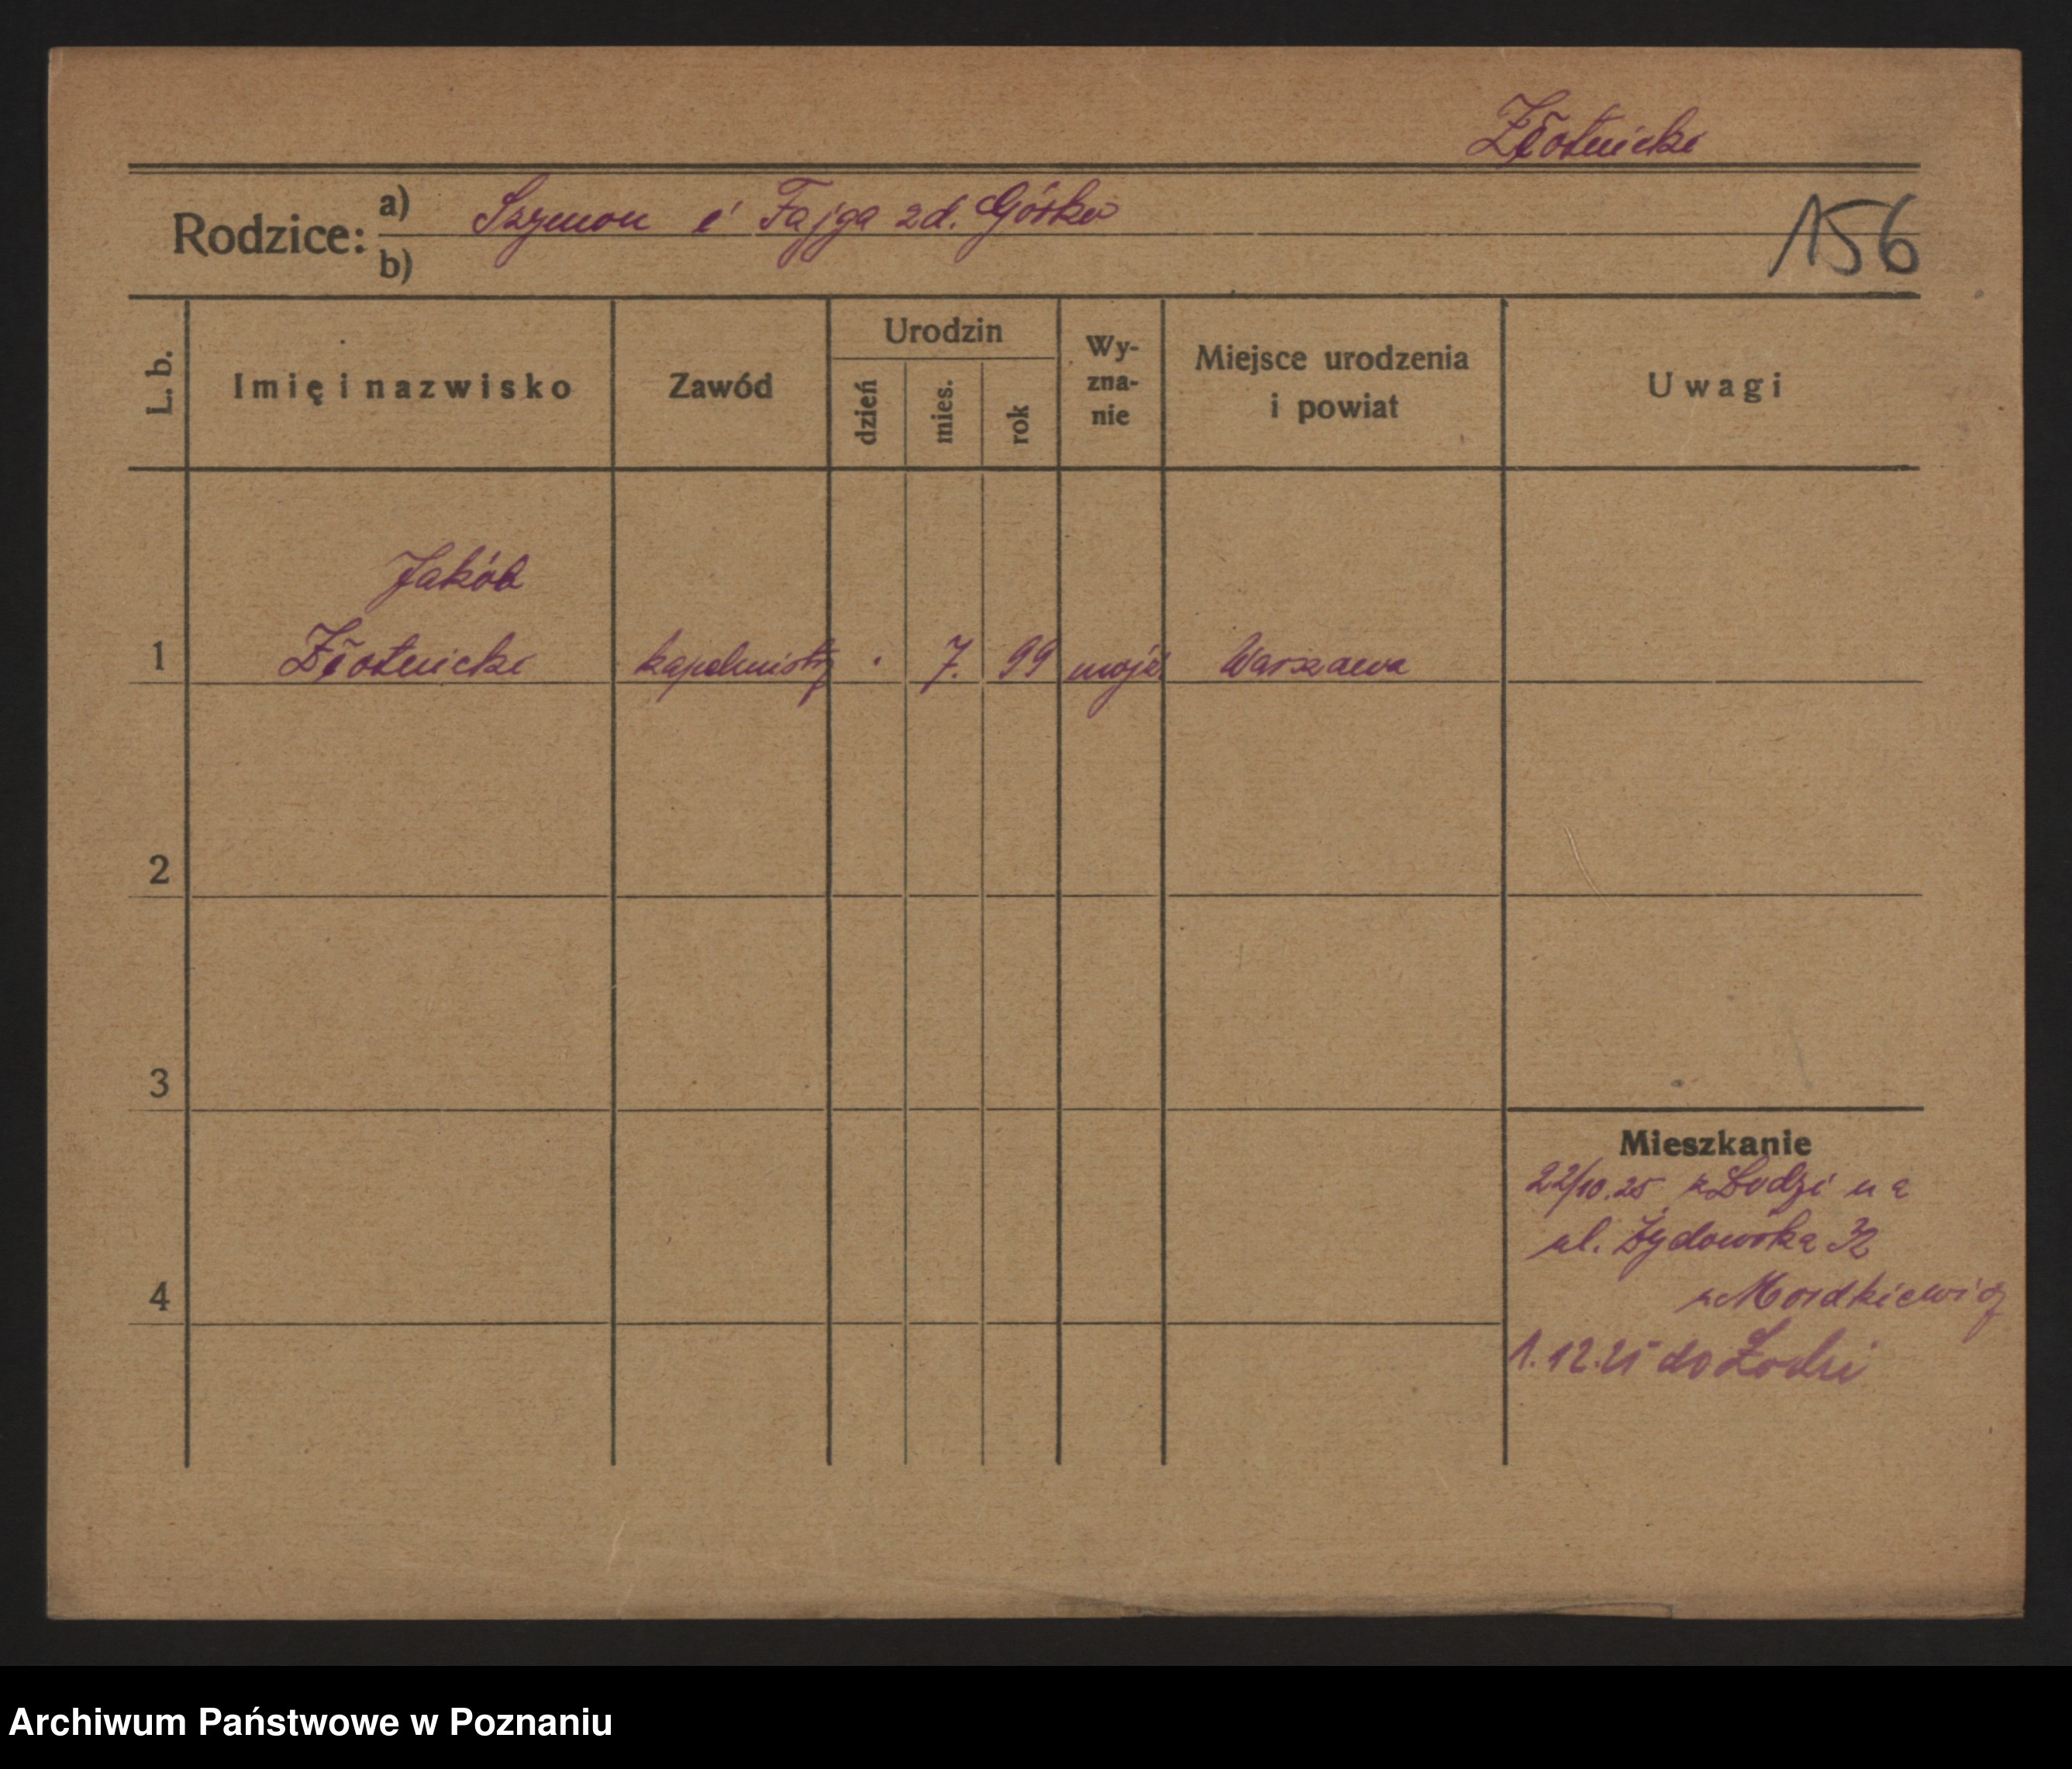 Złotnicki
Rodzice: a) Szymon i Fajga zd. Górka
b)
156
L. b.
Imię i nazwisko
Zawód
Urodzin
dzień
mies.
rok
Wy-
zna-
nie
Miejsce urodzenia
i powiat
Uwagi
Jakób
1 Złotnicki kapelmistrz . 7. 99 mojż. Warszawa
2
3
4
Mieszkanie
22/10.25 z Łodzi na
ul. Żydowska 32
z Mordkiewicz
1.12.25 do Łodzi
Archiwum Państwowe w Poznaniu